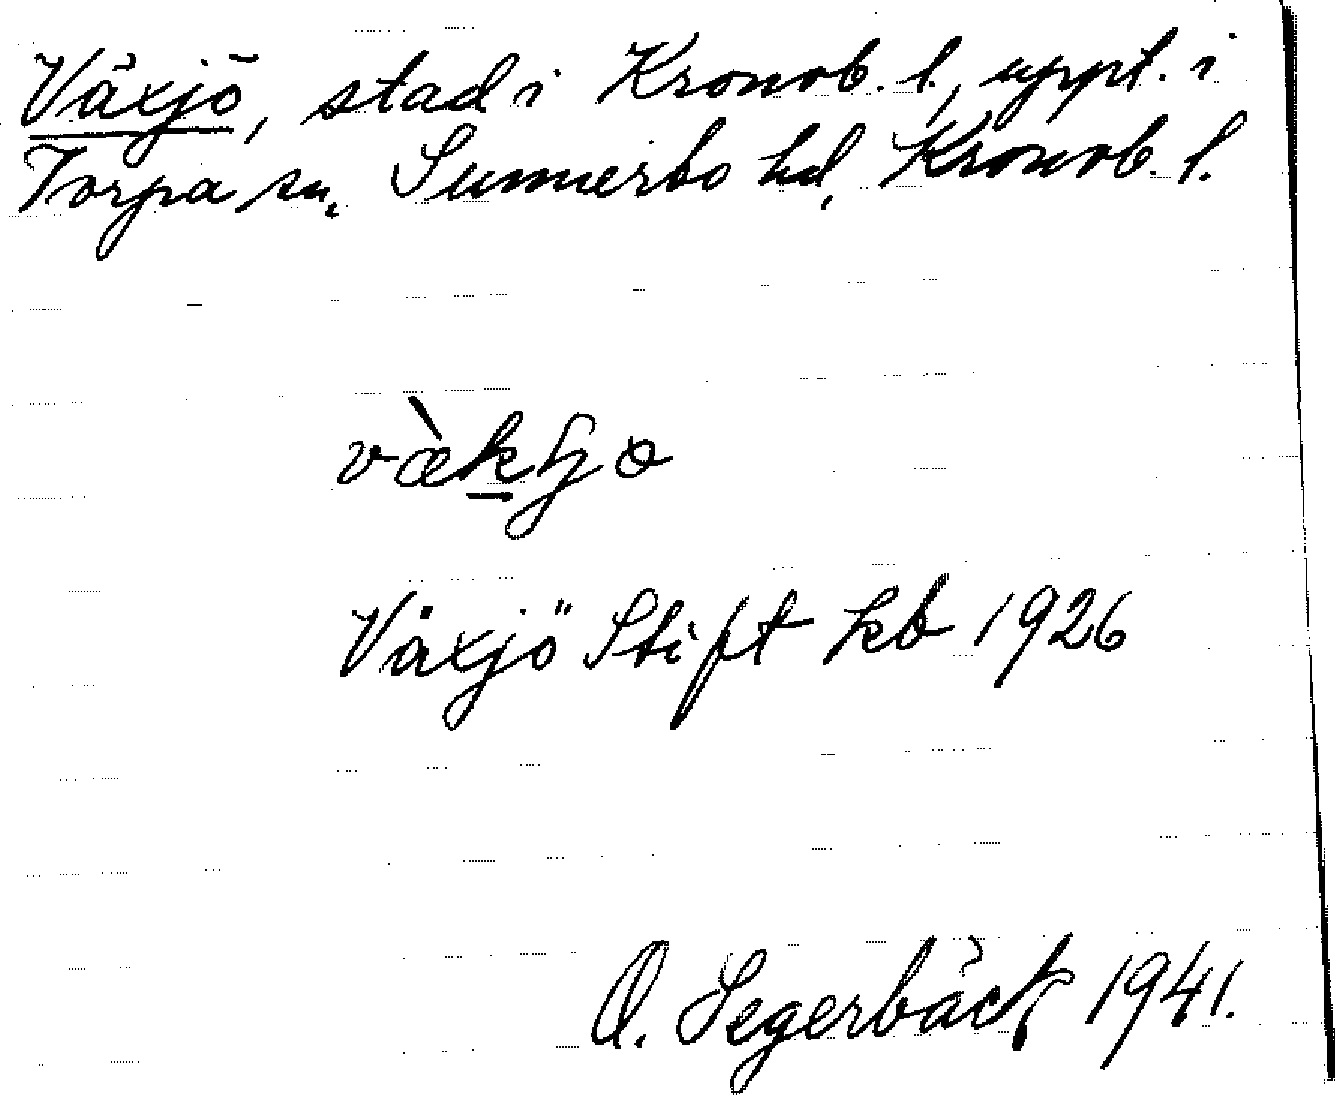 Växjö, stad i Kronob. l., uppt. i
Torpa sn, Sunnerbo hd, Kronob. l.
Växjö Stift kb 1926
O. Segerbäck 1941.